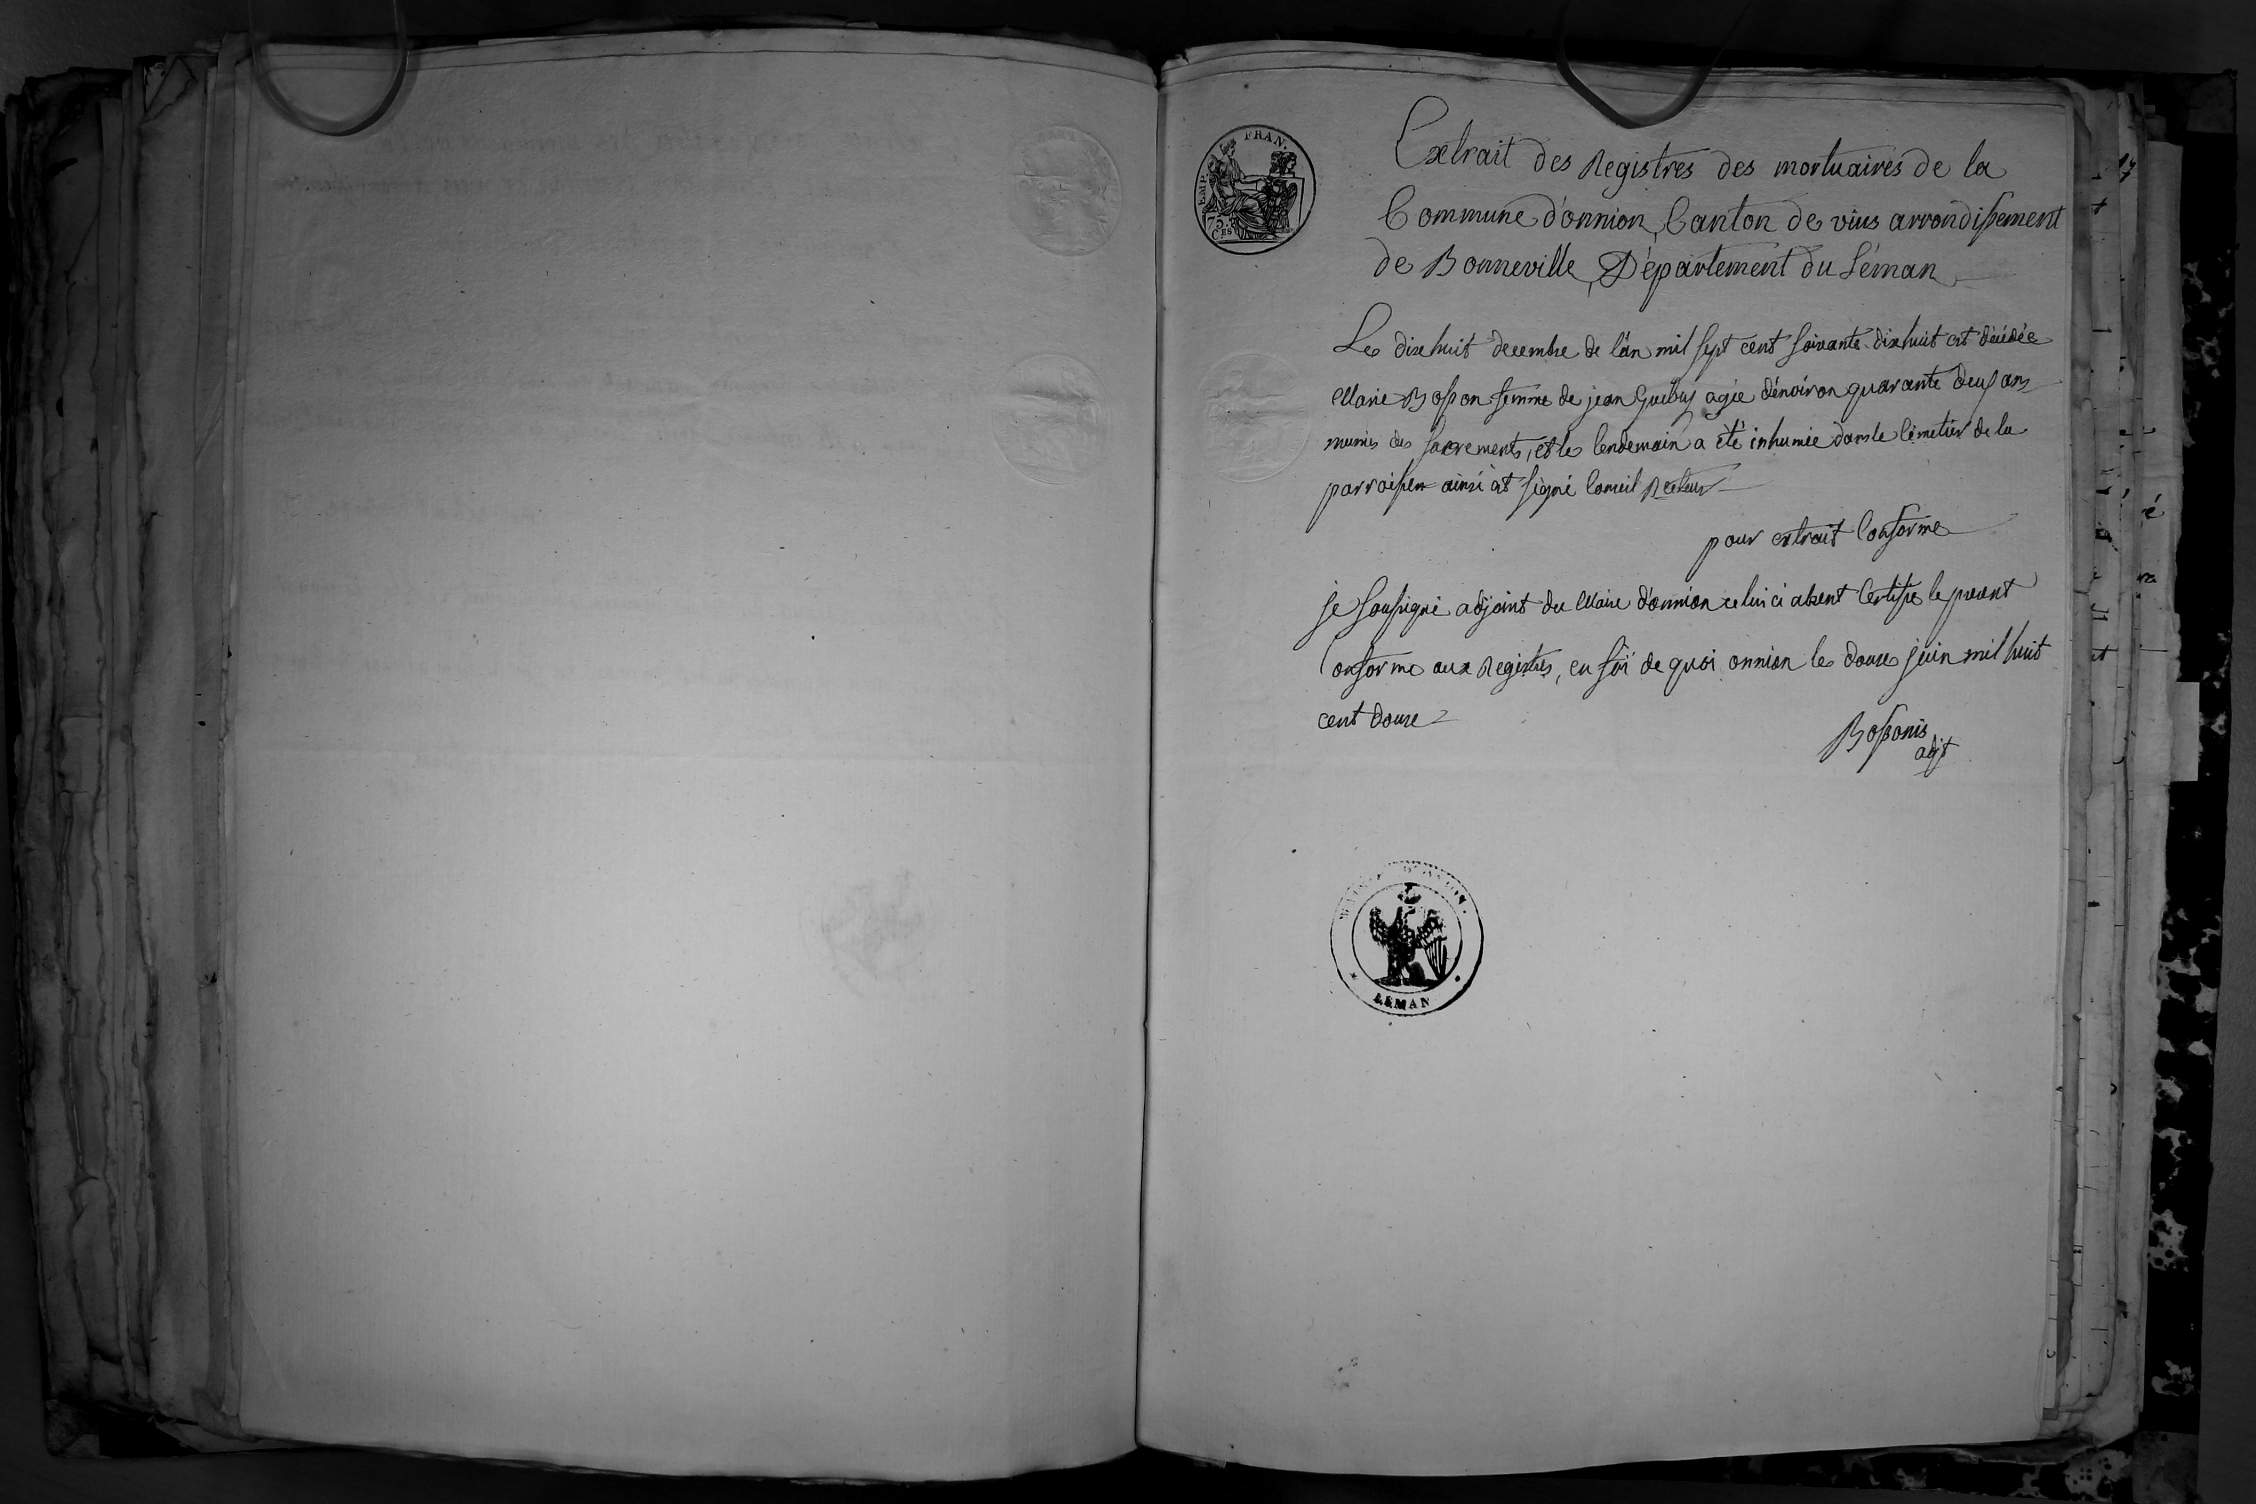 EMP. FRAN.
75.
CES
Extrait des Registres des mortuaires de la
Commune d'onnion, Canton de vius arrondissement
de Bonneville, Département du Léman
Le dixhuit decembre de l'an mil sept cent soixante-dixhuit est décédée
Marie Bosson femme de jean Guebuj agée d'énviron quarante deux ans
munies des sacrements, et le lendemain a été inhumée dans le Cimetier de la
parroisse ainsi est signé Recteur
pour extrait Conforme
je soussigné adjoint du Maire d'onnion celui ci absent Certifie le present
Conforme aux Registres, en foi de quoi onnion le douze juin mil huit
cent douze
Bossonis
adjt
LEMAN